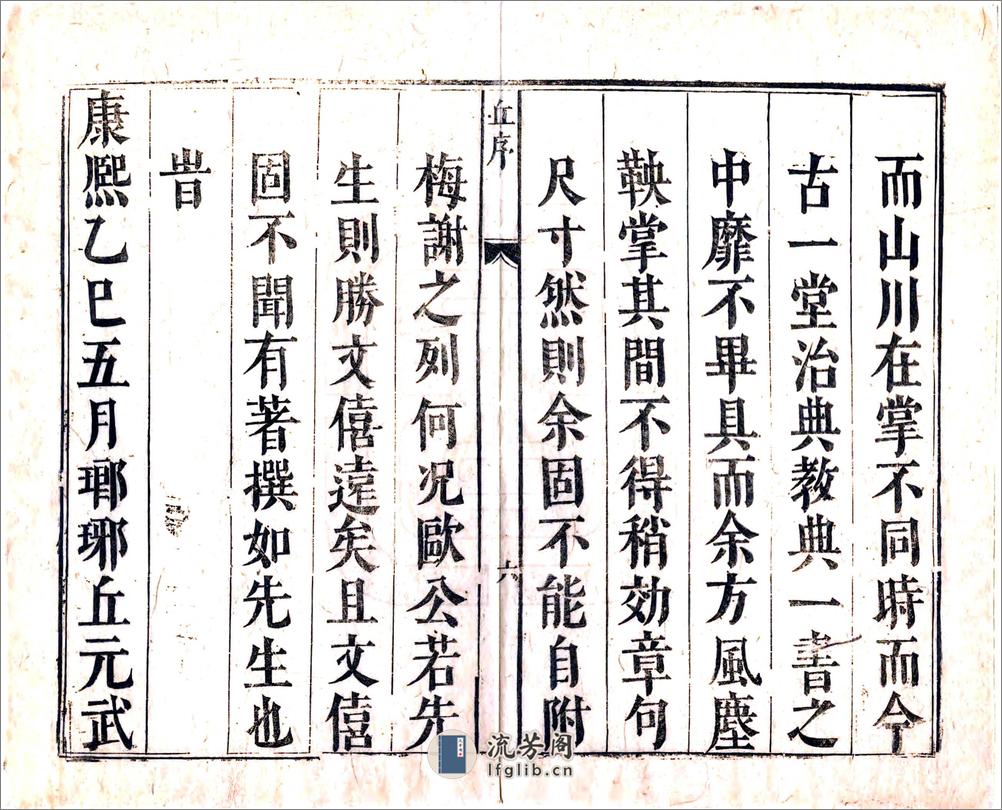 而山川在掌不同時而今
古一堂治典教典一書之
中靡不畢具而余方風塵
鞅掌其間不得稍効章句
尺寸然則余固不能自附
丘序
六
梅謝之列何况歐公若先
生則勝文僖遠矣且文僖
固不聞有著撰如先生也
旹
康熙乙巳五月瑯琊丘元武
流芳阁
lfglib.cn